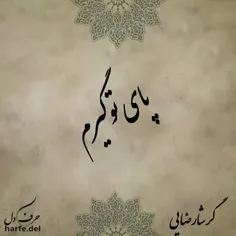 پای تو گیرم
گرشا رضایی
حرف دل
harfe.del